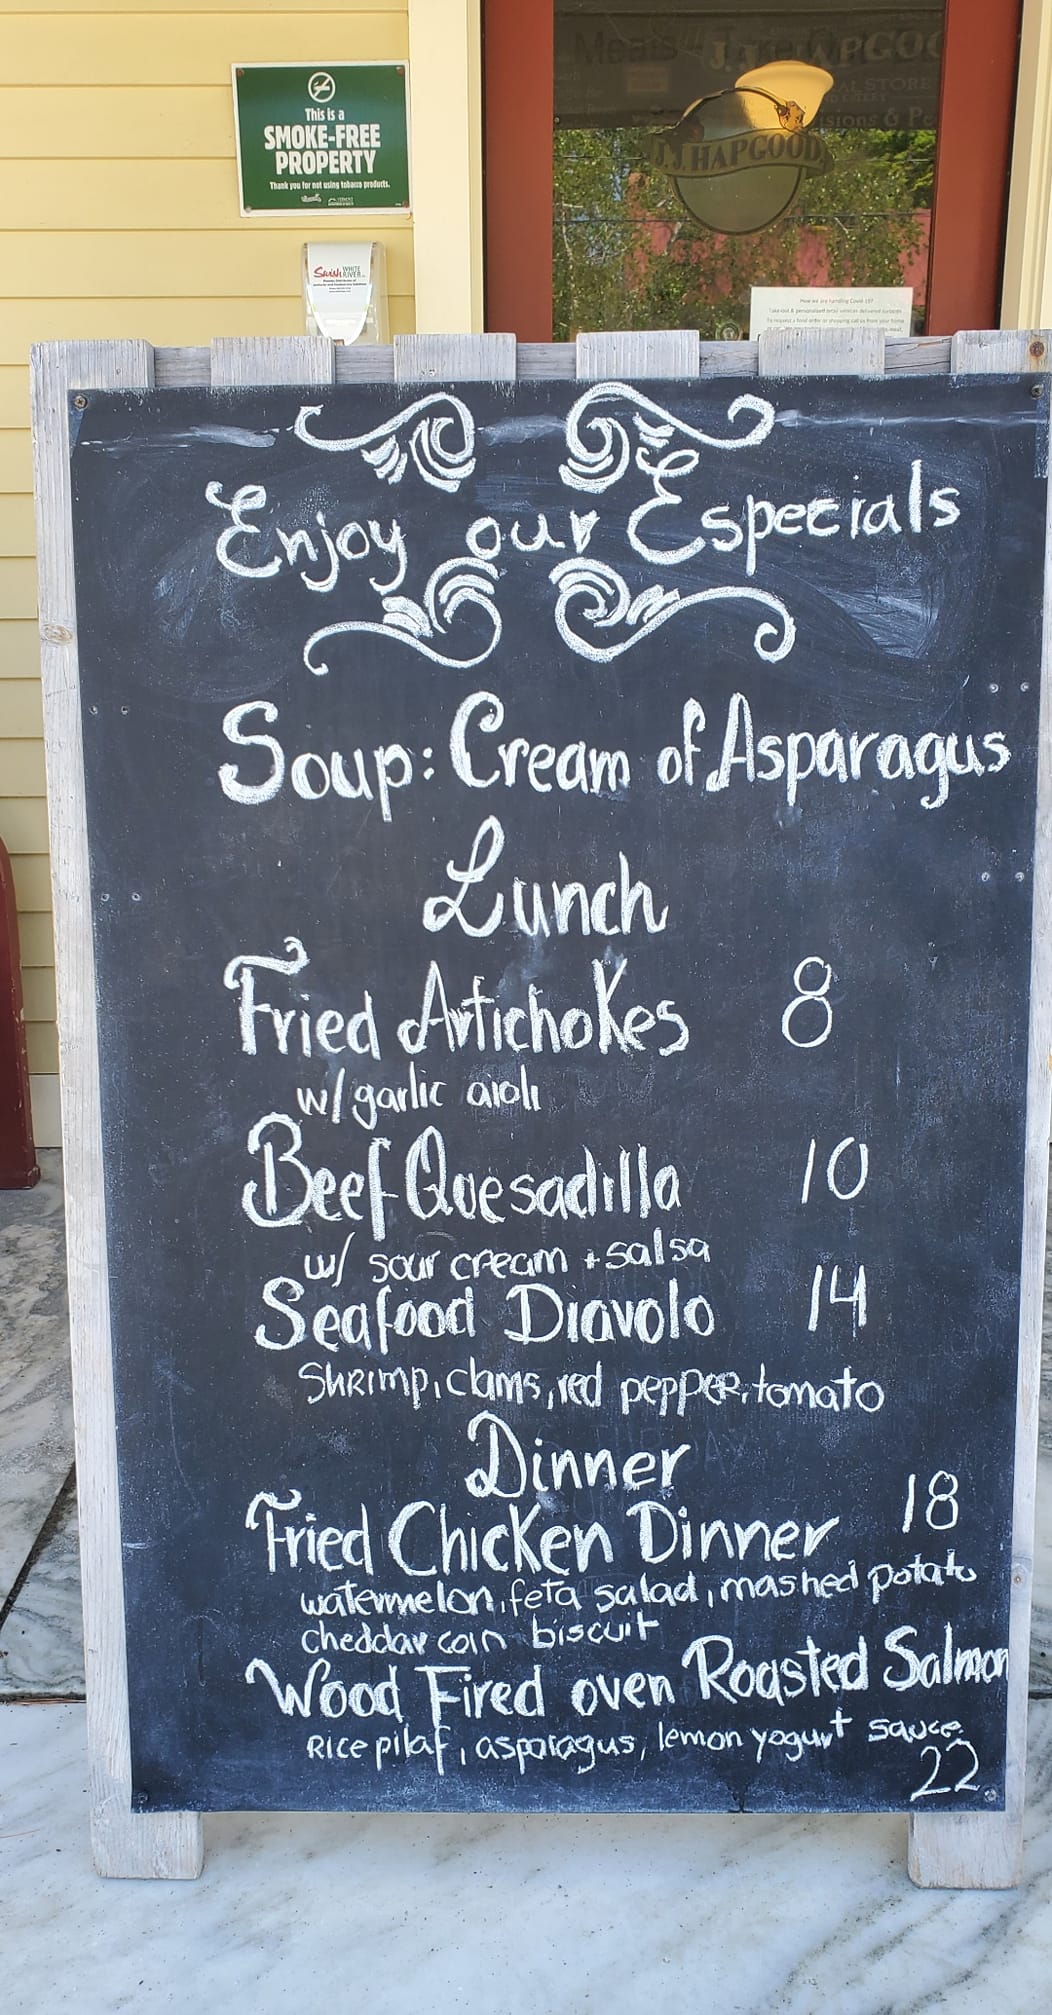 This is a
SMOKE-FREE
PROPERTY
Thank you for not using tobacco products.
Swish WHITE RIVER
J.J. HAPGOOD
How we are handling Covid-19?
Enjoy our Especials
Soup: Cream of Asparagus
Lunch
Fried Artichokes 8
w/ garlic aioli
Beef Quesadilla 10
w/ sour cream + salsa
Seafood Diavolo 14
Shrimp, clams, red pepper, tomato
Dinner
Fried Chicken Dinner 18
watermelon, feta salad, mashed potato
cheddar corn biscuit
Wood Fired oven Roasted Salmon
Rice pilaf, asparagus, lemon yogurt sauce
22